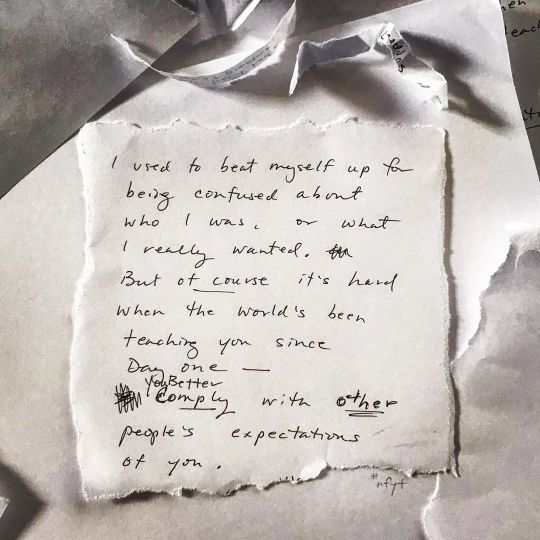 I used to beat myself up for
being confused about
who I was, or what
I really wanted.
But of course it's hard
when the world's been
teaching you since
Day one —
You Better
Comply with other
people's expectations
of you.
#nfyt